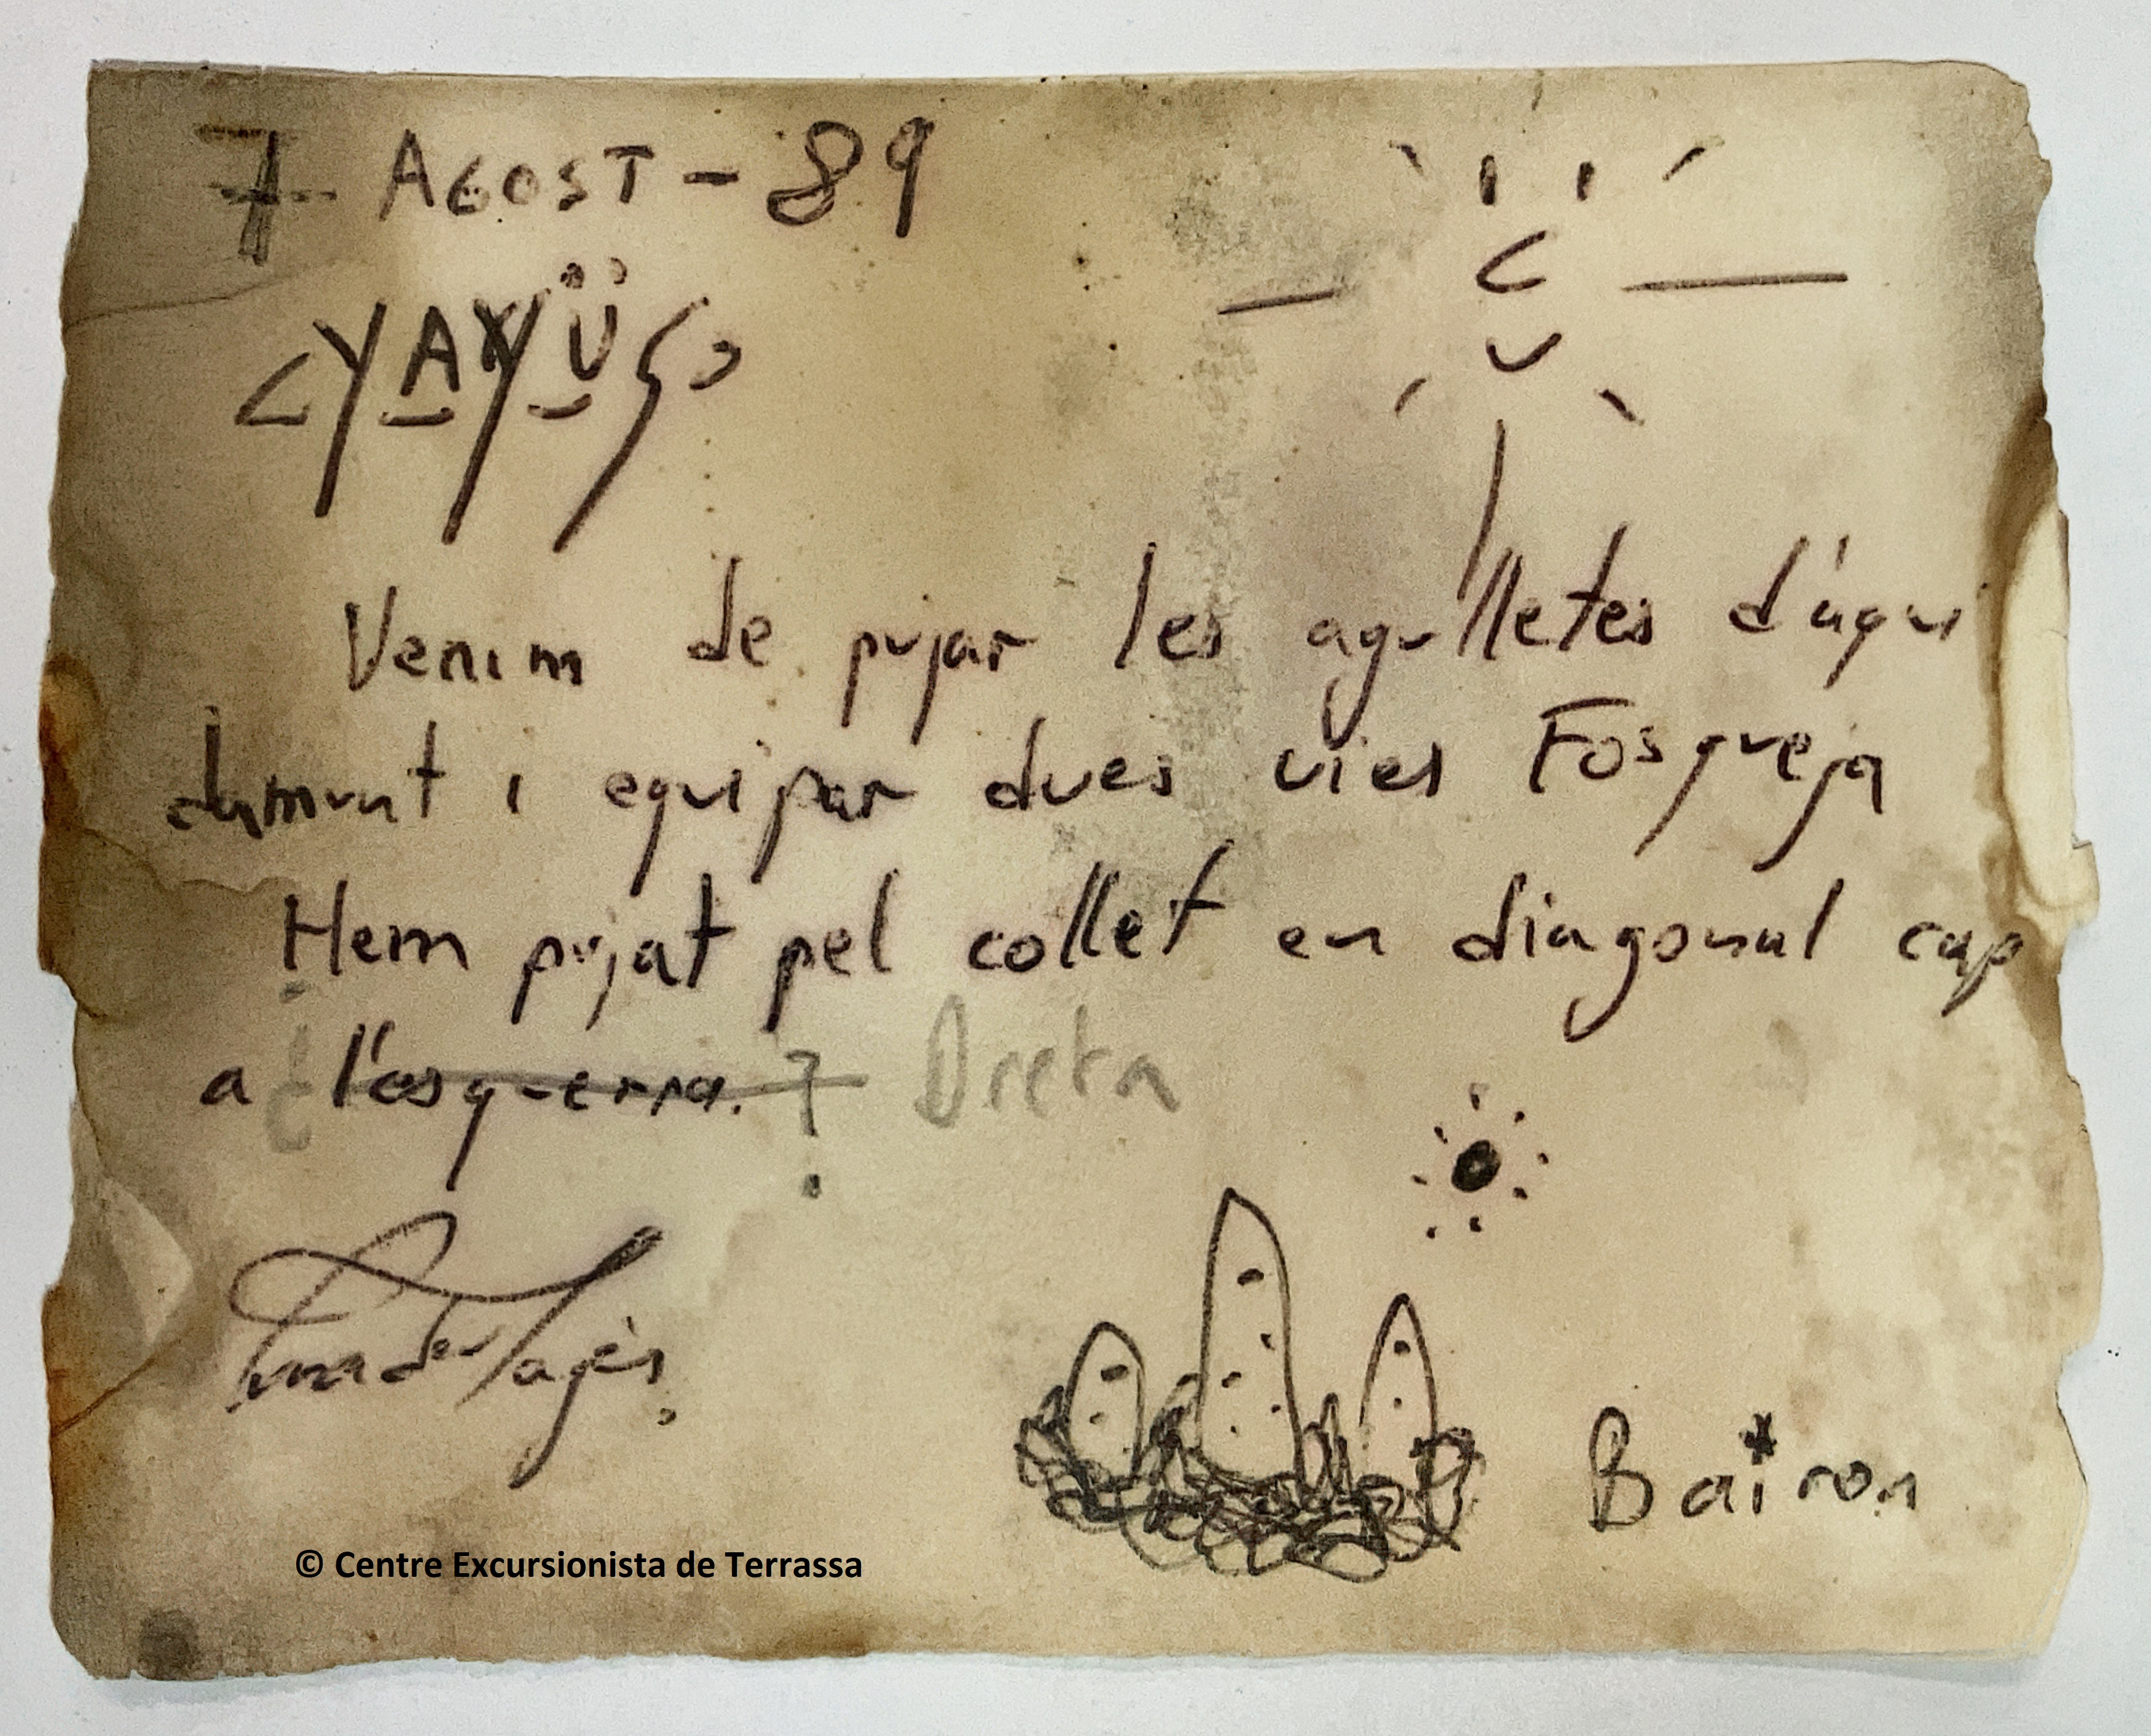 7 AGOST - 89
<YAYÜS>
Venim de pujar les agulletes d'aqui
damunt i equipar dues vies Fosqueja
Hem pujat pel collet en diagonal cap
a l'esquerra. ? Dreta
Bairon
© Centre Excursionista de Terrassa